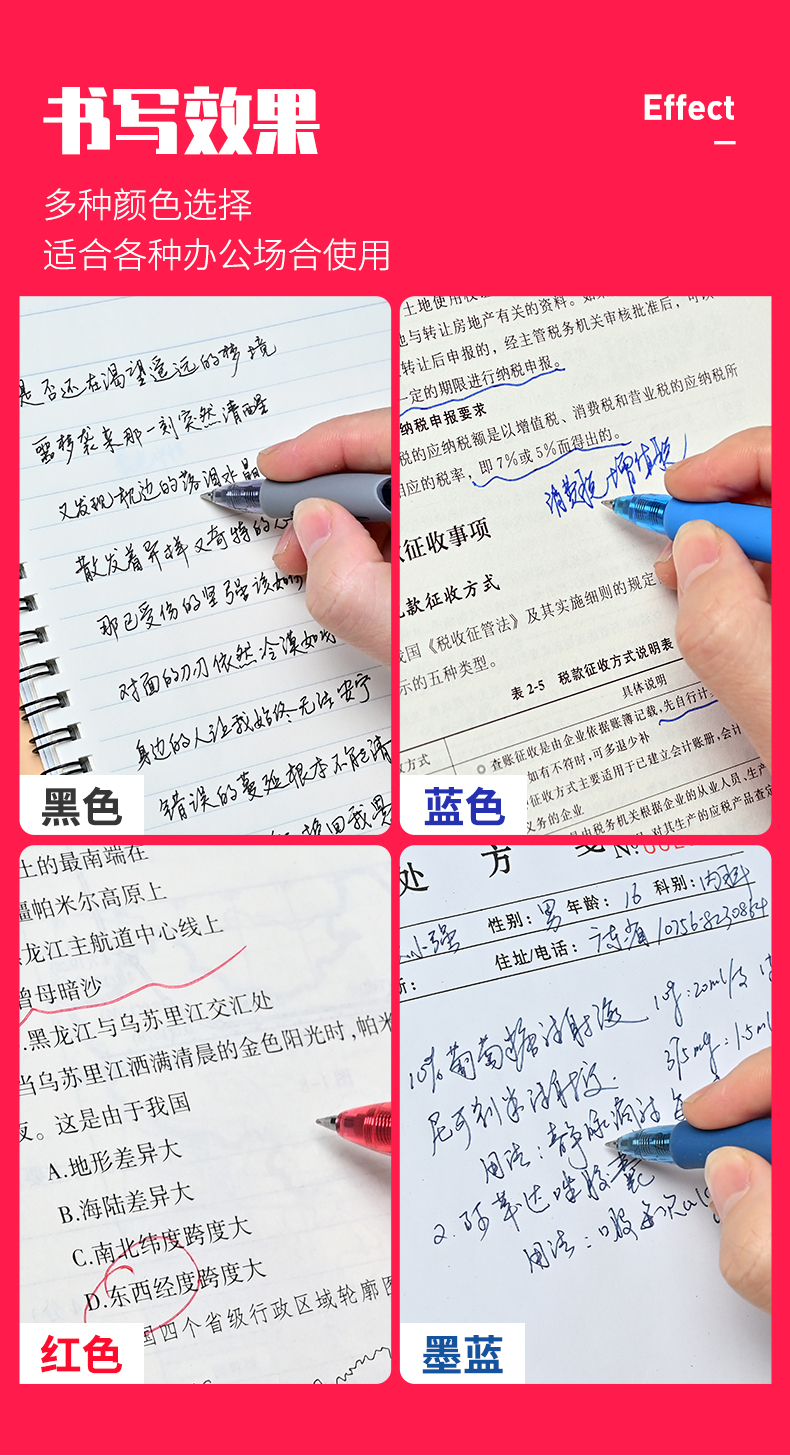 书写效果
Effect
多种颜色选择
适合各种办公场合使用
是否还在渴望遥远的梦境
噩梦袭来那一刻突然清醒
又发现枕边的落泪水晶
散发着异样又奇特的
那已受伤的坚强该如何
对面的刀刃依然冷漠如
身边的人让我始终无法安宁
错误的蔓延根本不能清
黑色
土地使用权
地与转让房地产有关的资料。如果
转让后申报的，经主管税务机关审核批准后，可以
一定的期限进行纳税申报。
纳税申报要求
税的应纳税额是以增值税、消费税和营业税的应纳税所
相应的税率，即7%或5%而得出的。
消费税 增值税
征收事项
税款征收方式
我国《税收征管法》及其实施细则的规定
示的五种类型。
表 2-5 税款征收方式说明表
方式
具体说明
查账征收是由企业依据账簿记载，先自行计
如有不符时，可多退少补
征收方式主要适用于已建立会计账册，会计
义务的企业
是由税务机关根据企业的从业人员、生产
对其生产的应税产品查定
蓝色
土的最南端在
疆帕米尔高原上
黑龙江主航道中心线上
曾母暗沙
.黑龙江与乌苏里江交汇处
当乌苏里江洒满清晨的金色阳光时，帕米
夜。这是由于我国
A.地形差异大
B.海陆差异大
C.南北纬度跨度大
D.东西经度跨度大
国四个省级行政区域轮廓图
红色
处 方 笺
No.
小强 性别：男 年龄：16 科别：内科
住址/电话：
10% 葡萄糖注射液 10g：20ml/支
尼可刹米注射液 375mg：1.5ml
用法：静脉滴注
2.阿莫达唑胶囊
用法：口服 每次
墨蓝